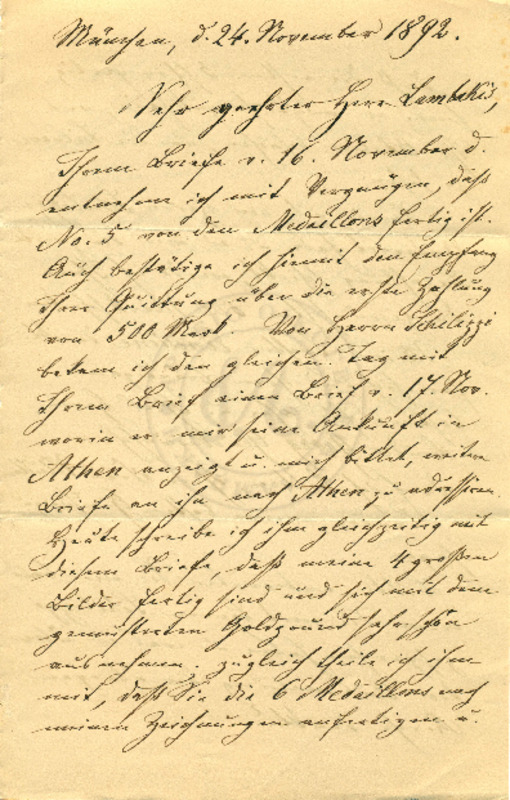 München, d. 24. November 1892.
Sehr geehrter Herr Lambakis,
Ihrem Briefe v. 16. November d.
entnehme ich mit Vergnügen, daß
No. 5 von den Medaillons fertig ist.
Auch bestätige ich hiemit den Empfang
Ihrer Quittung über die erste Zahlung
von 500 Mark. Von Herrn Schilizzi
bekam ich den gleichen Tag mit
Ihrem Brief einen Brief v. 17. Nov.
worin er mir seine Ankunft in
Athen anzeigt u. mich bittet, weitere
Briefe an ihn nach Athen zu adressiren.
Heute schreibe ich ihm gleichzeitig mit
diesem Briefe, daß meine 4 großen
Bilder fertig sind und sich mit dem
gemusterten Goldgrund sehr schön
ausnehmen. zugleich theile ich ihm
mit, daß Sie die 6 Medaillons nach
meinen Zeichnungen anfertigen u.